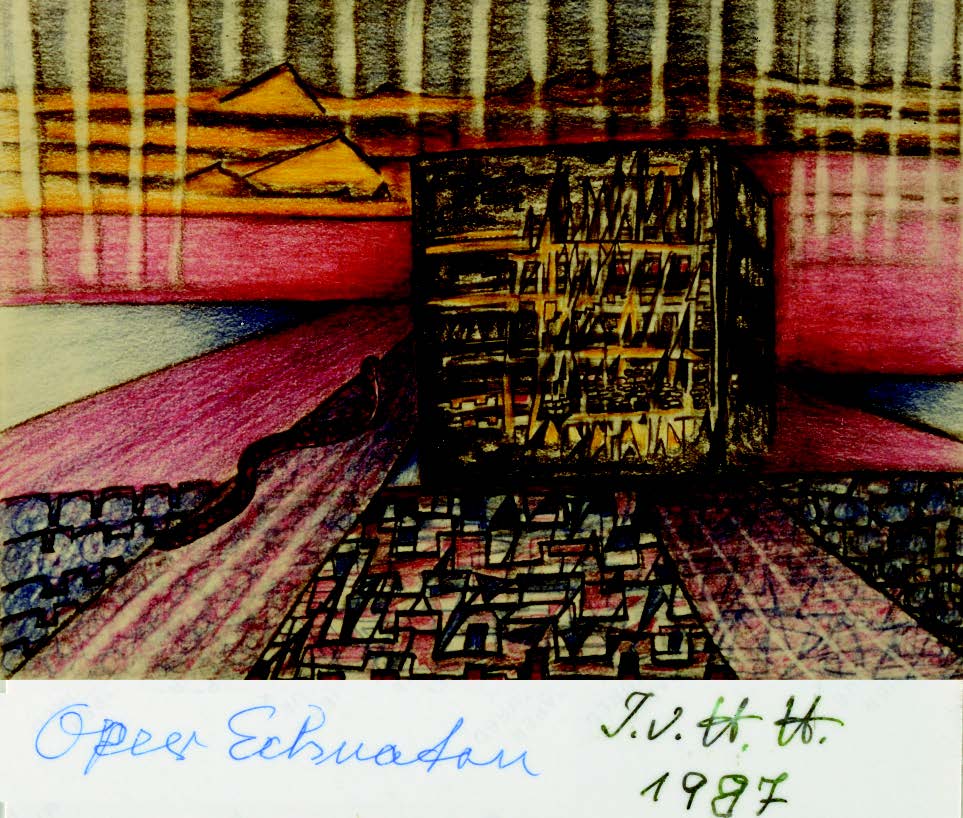 Oper Echnaton
J.v.H.H.
1987